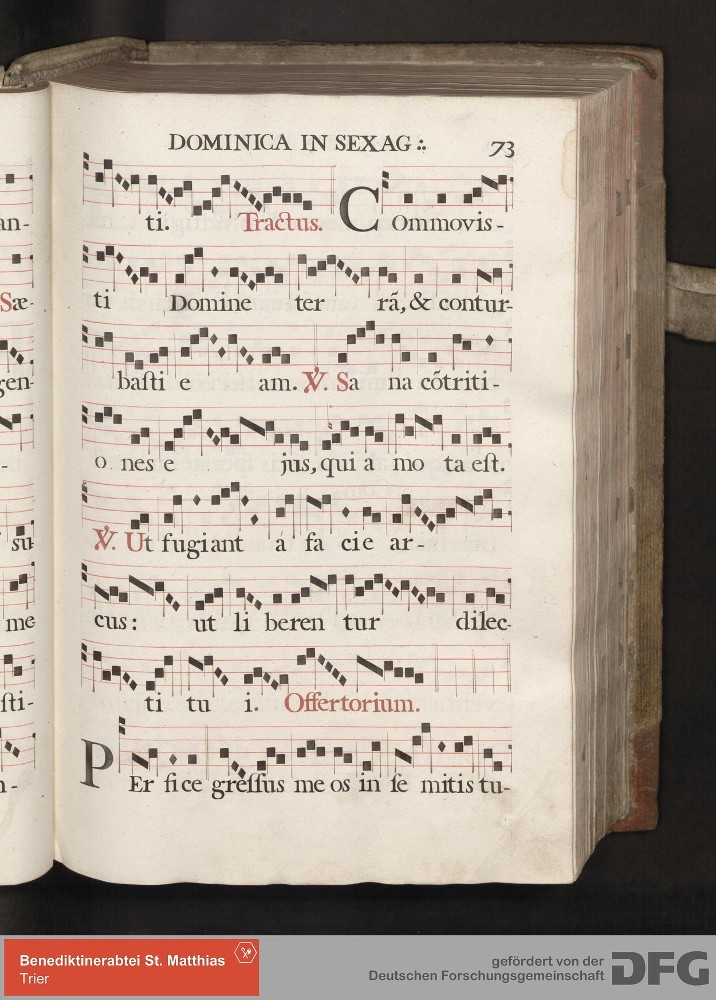 DOMINICA IN SEXAG 73
ti. Tractus. COmmovis-
ti Domine ter rã, & contur-
basti e am. ℣. Sa na cõtriti-
o nes e jus, qui a mo ta est.
℣. Ut fugiant á fa cie ar-
cus: ut li beren tur dilec-
ti tu i. Offertorium.
PEr fice gressus me os in se mitis tu-
an-
Sæ-
gen-
-
su-
me
sti-
-
Benediktinerabtei St. Matthias
Trier
gefördert von der
Deutschen Forschungsgemeinschaft
DFG